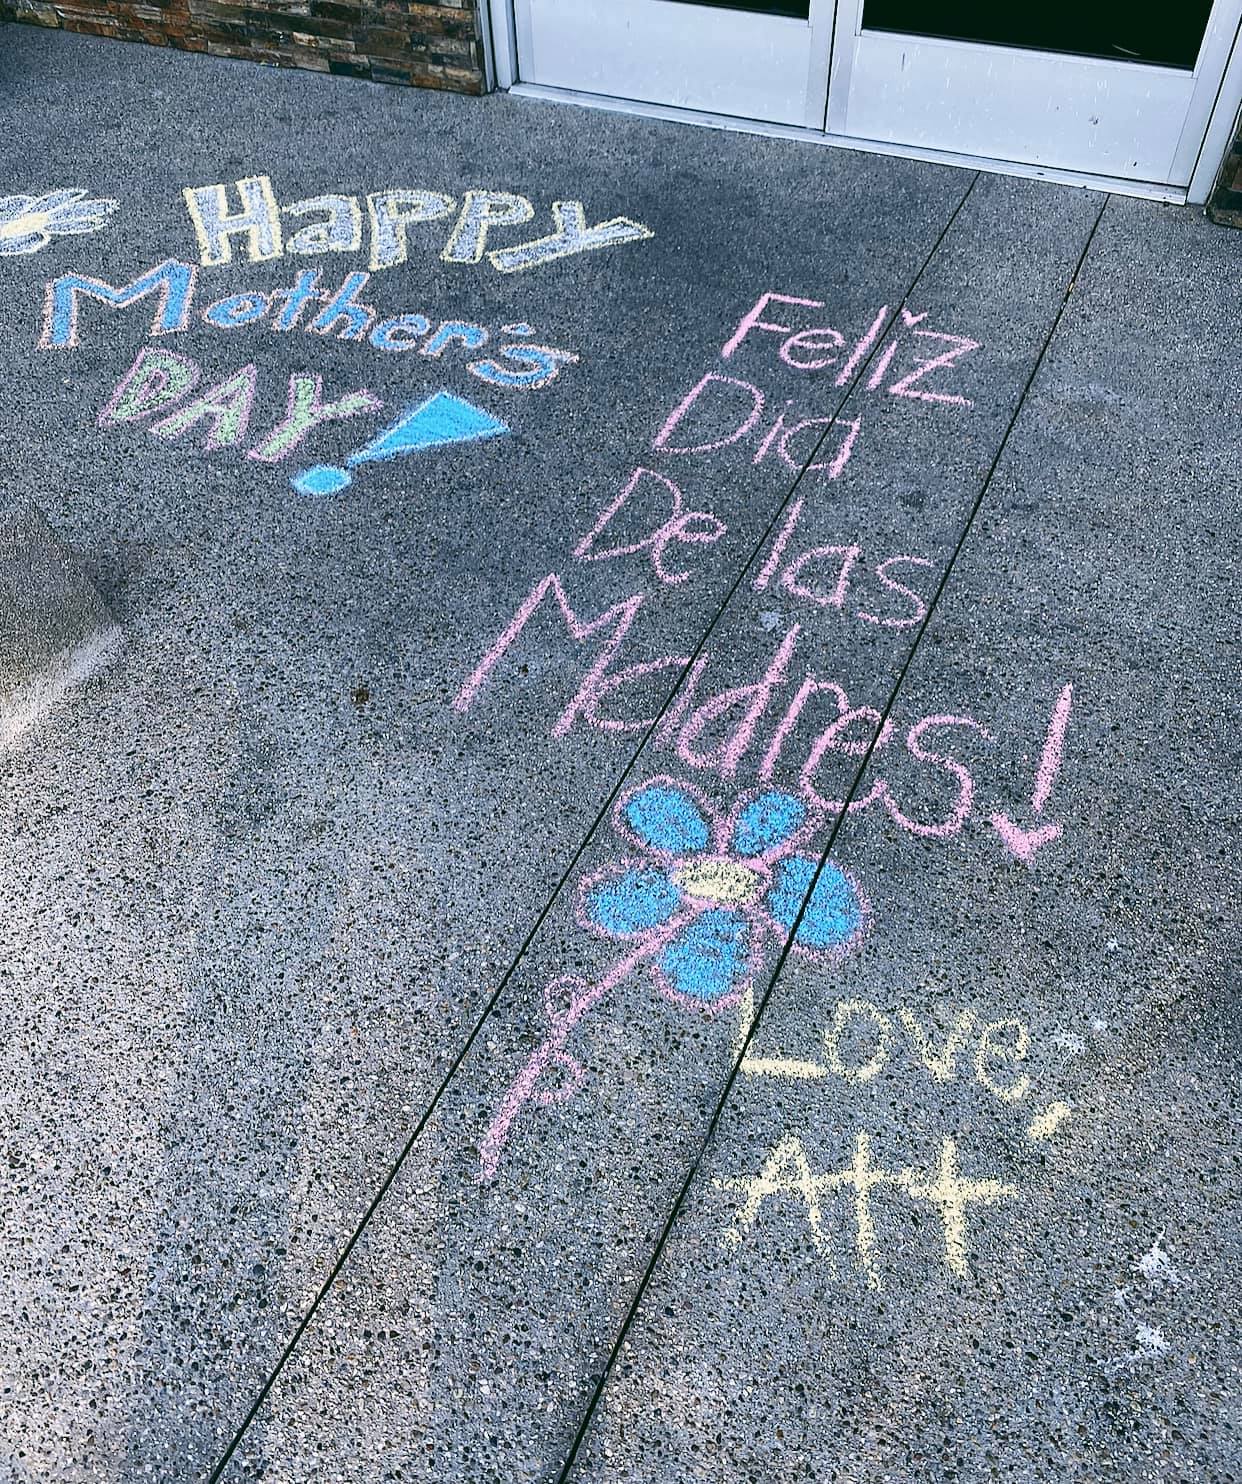 Happy
Mother's
DAY!
Feliz
Dia
De las
Madres!
Love,
Att